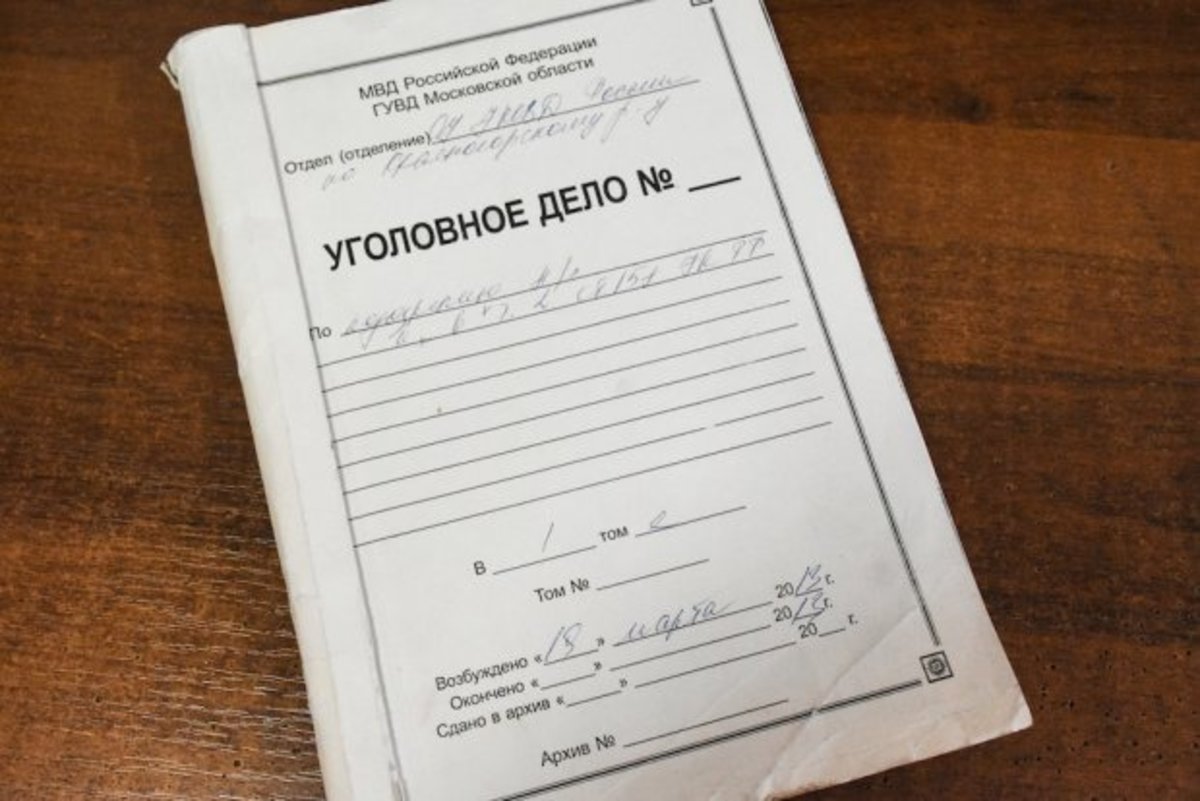 МВД Российской Федерации
ГУВД Московской области
Отдел (отделение) СУ УМВД России
по Красногорскому р-у
УГОЛОВНОЕ ДЕЛО №
По
УК РФ
В 1 том е
Том №
Возбуждено «18» марта 2013 г.
Окончено « » 2013 г.
Сдано в архив « » 20 г.
Архив №